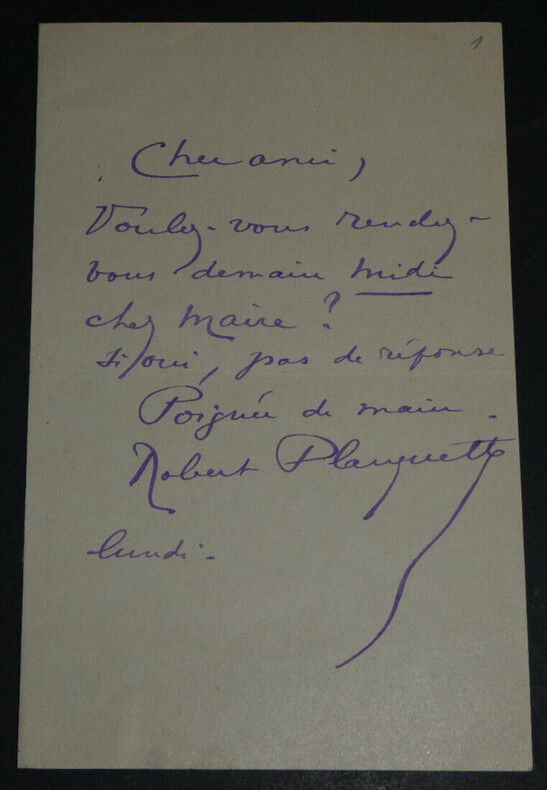 1
Cher ami,
Voulez-vous rendez-
vous demain midi
chez Maire ?
Si oui, pas de réponse
Poignée de main.
Robert Planquette
lundi-